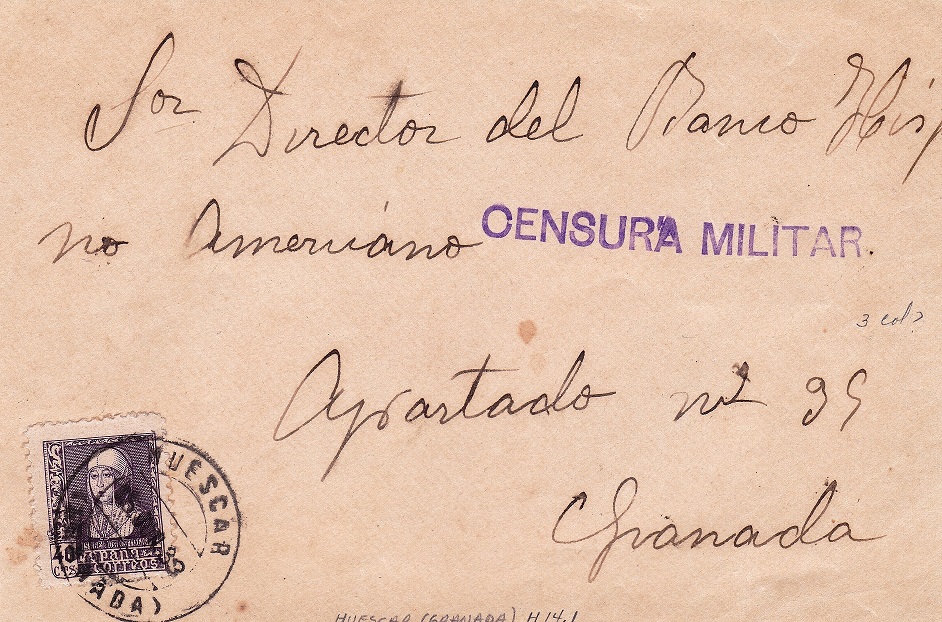 Sor Director del Banco Hisp
no Americano
CENSURA MILITAR.
3 col?
Apartado nº 35
Granada
HUESCAR
40
CTS
ESPAÑA
CORREOS
ADA)
HUESCAR (GRANADA) H 14.1